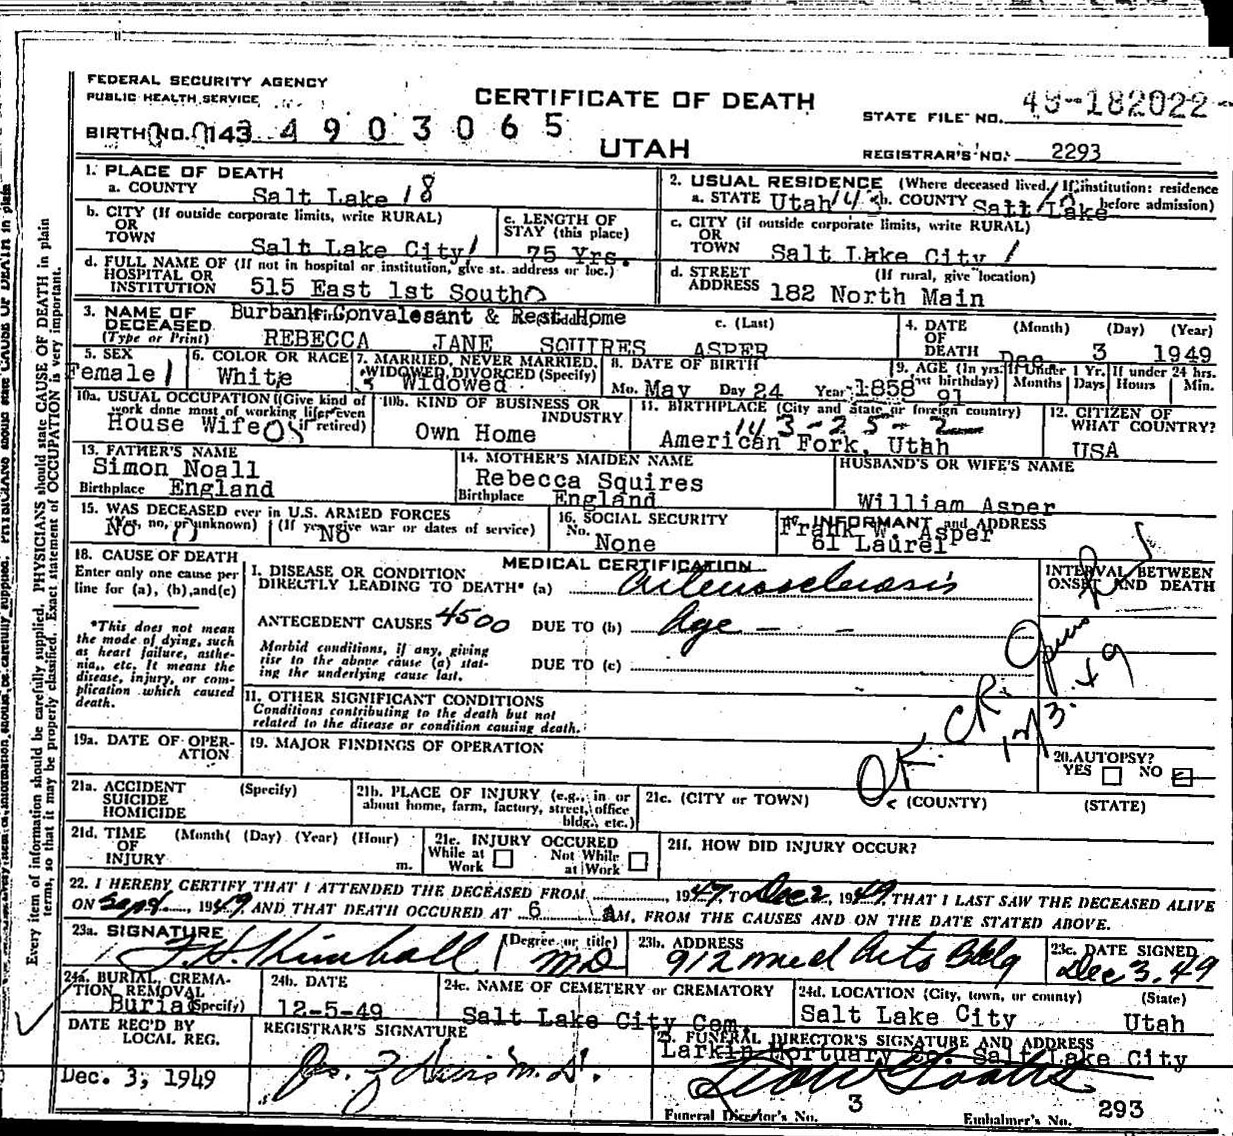 FEDERAL SECURITY AGENCY
PUBLIC HEALTH SERVICE
CERTIFICATE OF DEATH
UTAH
STATE FILE NO. 49-182022
BIRTH NO. 143 4903065
REGISTRAR'S NO. 2293
1. PLACE OF DEATH
a. COUNTY Salt Lake 18
b. CITY (If outside corporate limits, write RURAL) OR TOWN Salt Lake City
c. LENGTH OF STAY (this place) 75 Yrs.
d. FULL NAME OF (If not in hospital or institution, give st. address or loc.) HOSPITAL OR INSTITUTION 515 East 1st South
Burbank Convalesant & Rest Home
2. USUAL RESIDENCE (Where deceased lived. If institution: residence before admission)
a. STATE Utah b. COUNTY Salt Lake
c. CITY (if outside corporate limits, write RURAL) OR TOWN Salt Lake City
d. STREET ADDRESS (If rural, give location) 182 North Main
3. NAME OF DECEASED (Type or Print) REBECCA JANE SQUIRES ASPER
c. (Last)
4. DATE OF DEATH (Month) (Day) (Year) Dec 3 1949
5. SEX Female
6. COLOR OR RACE White
7. MARRIED, NEVER MARRIED, WIDOWED, DIVORCED (Specify) Widowed
8. DATE OF BIRTH Mo. May Day 24 Year 1858
9. AGE (In yrs. last birthday) 91
If Under 1 Yr. Months Days
If under 24 hrs. Hours Min.
10a. USUAL OCCUPATION (Give kind of work done most of working life, even if retired) House Wife
10b. KIND OF BUSINESS OR INDUSTRY Own Home
11. BIRTHPLACE (City and state or foreign country) 143-25-2
American Fork, Utah
12. CITIZEN OF WHAT COUNTRY? USA
13. FATHER'S NAME Simon Noall
Birthplace England
14. MOTHER'S MAIDEN NAME Rebecca Squires
Birthplace England
HUSBAND'S OR WIFE'S NAME William Asper
15. WAS DECEASED ever in U.S. ARMED FORCES
(Yes, no, or unknown) No (If yes, give war or dates of service) No
16. SOCIAL SECURITY No. None
17. INFORMANT and ADDRESS Frank W. Asper
61 Laurel
18. CAUSE OF DEATH
Enter only one cause per line for (a), (b), and (c)
*This does not mean the mode of dying, such as heart failure, asthenia, etc. It means the disease, injury, or complication which caused death.
MEDICAL CERTIFICATION
I. DISEASE OR CONDITION DIRECTLY LEADING TO DEATH* (a) Arteriosclerosis
ANTECEDENT CAUSES 4500 DUE TO (b) Age
Morbid conditions, if any, giving rise to the above cause (a) stating the underlying cause last.
DUE TO (c)
INTERVAL BETWEEN ONSET AND DEATH
11. OTHER SIGNIFICANT CONDITIONS
Conditions contributing to the death but not related to the disease or condition causing death.
OK. CR.
12/3.49
19a. DATE OF OPERATION
19. MAJOR FINDINGS OF OPERATION
20. AUTOPSY?
YES NO
21a. ACCIDENT SUICIDE HOMICIDE (Specify)
21b. PLACE OF INJURY (e.g., in or about home, farm, factory, street, office bldg., etc.)
21c. (CITY or TOWN) (COUNTY) (STATE)
21d. TIME OF INJURY (Month) (Day) (Year) (Hour) m.
21e. INJURY OCCURED
While at Work Not While at Work
21f. HOW DID INJURY OCCUR?
22. I HEREBY CERTIFY THAT I ATTENDED THE DECEASED FROM 1947, TO Dec 2, 1949, THAT I LAST SAW THE DECEASED ALIVE
ON 1949, AND THAT DEATH OCCURED AT 6 AM, FROM THE CAUSES AND ON THE DATE STATED ABOVE.
23a. SIGNATURE Kimball (Degree or title) MD
23b. ADDRESS 912 Med Arts Bldg
23c. DATE SIGNED Dec 3, 49
24a. BURIAL, CREMATION REMOVAL (Specify) Burial
24b. DATE 12-5-49
24c. NAME OF CEMETERY or CREMATORY Salt Lake City Cem.
24d. LOCATION (City, town, or county) (State) Salt Lake City Utah
DATE REC'D BY LOCAL REG. Dec. 3, 1949
REGISTRAR'S SIGNATURE
25. FUNERAL DIRECTOR'S SIGNATURE AND ADDRESS
Larkin Mortuary Co. Salt Lake City
Funeral Director's No. 3 Embalmer's No. 293
Every item of information should be carefully supplied. PHYSICIANS should state CAUSE OF DEATH in plain
terms, so that it may be properly classified. Exact statement of OCCUPATION is very important.